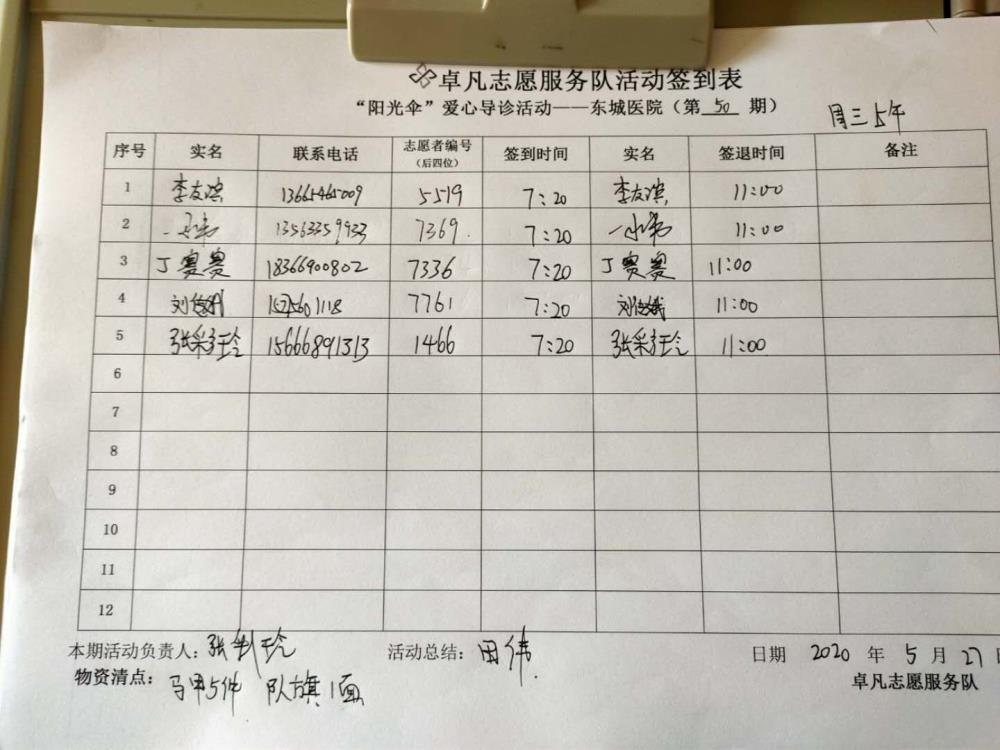 卓凡志愿服务队活动签到表
“阳光伞”爱心导诊活动——东城医院（第 50 期）
周三上午
序号 实名 联系电话 志愿者编号（后四位） 签到时间 实名 签退时间 备注
1 李友滨 13665465009 5519 7:20 李友滨 11:00
2 13563359933 7369 7:20 11:00
3 丁赛赛 18366900802 7336 7:20 丁赛赛 11:00
4 刘 1118 7761 7:20 刘 11:00
5 张彩玲 15666891313 1466 7:20 张彩玲 11:00
6
7
8
9
10
11
12
本期活动负责人：张彩玲 活动总结：田伟 日期 2020 年 5 月 27 日
物资清点：马甲5件 队旗1面 卓凡志愿服务队